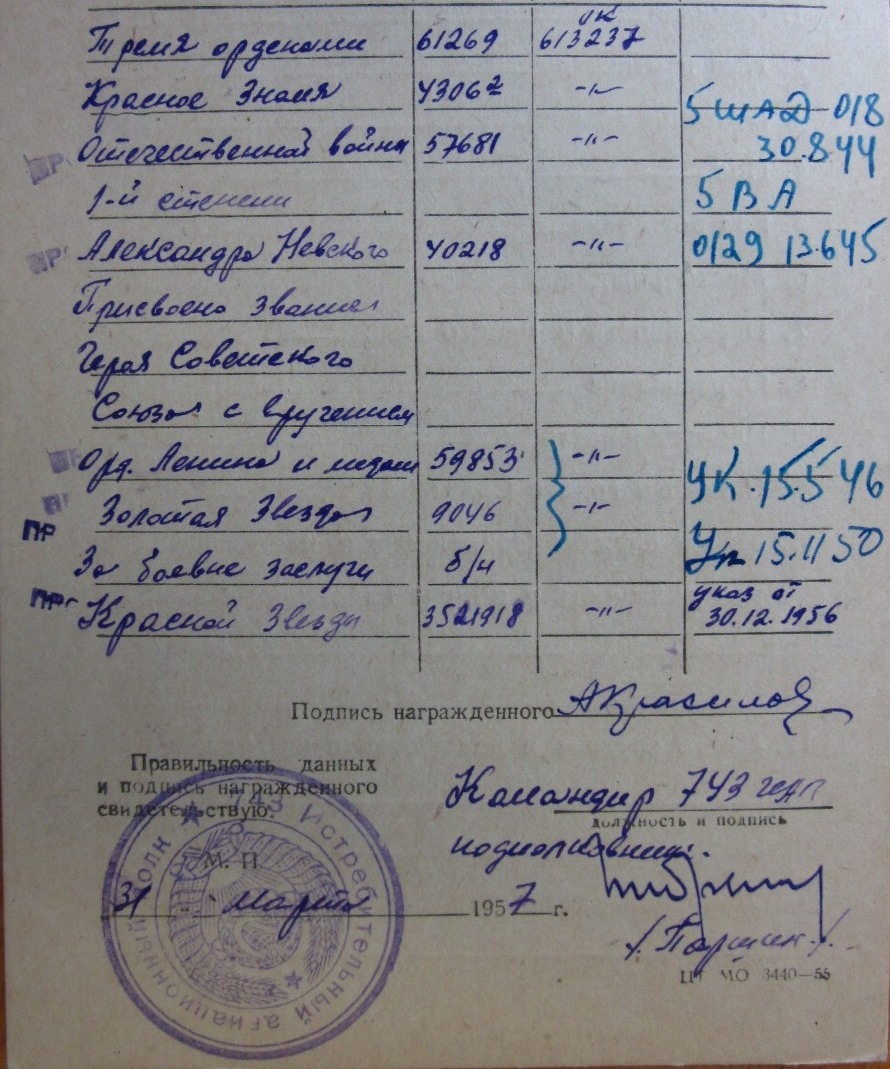 ок
Тремя орденами 61269 613237
Красное Знамя 43062 -"-
5 ШАД 018
ПР Отечественной войны 57681 -"- 30.8.44
1-й степени 5 ВА
ПР Александра Невского 40218 -"- 0129 13.6.45
Присвоено звание
Героя Советского
Союза с вручением
Орд. Ленина и медали 59853 -"-
УК. 15.5 46
Золотая Звезда 9046 -"-
ПР
За боевые заслуги б/н 15.11 50
ПР Красной Звезды 3521918 -"- указ от
30.12.1956
Подпись награжденного АКрасилов
Правильность данных
и подпись награжденного
свидетельствую.
Командир 743 иап
должность и подпись
подполковник
М. П.
31 марта 1957 г.
/Паршин/
ЦТ МО 3440—55
743 Истребительный авиационный полк